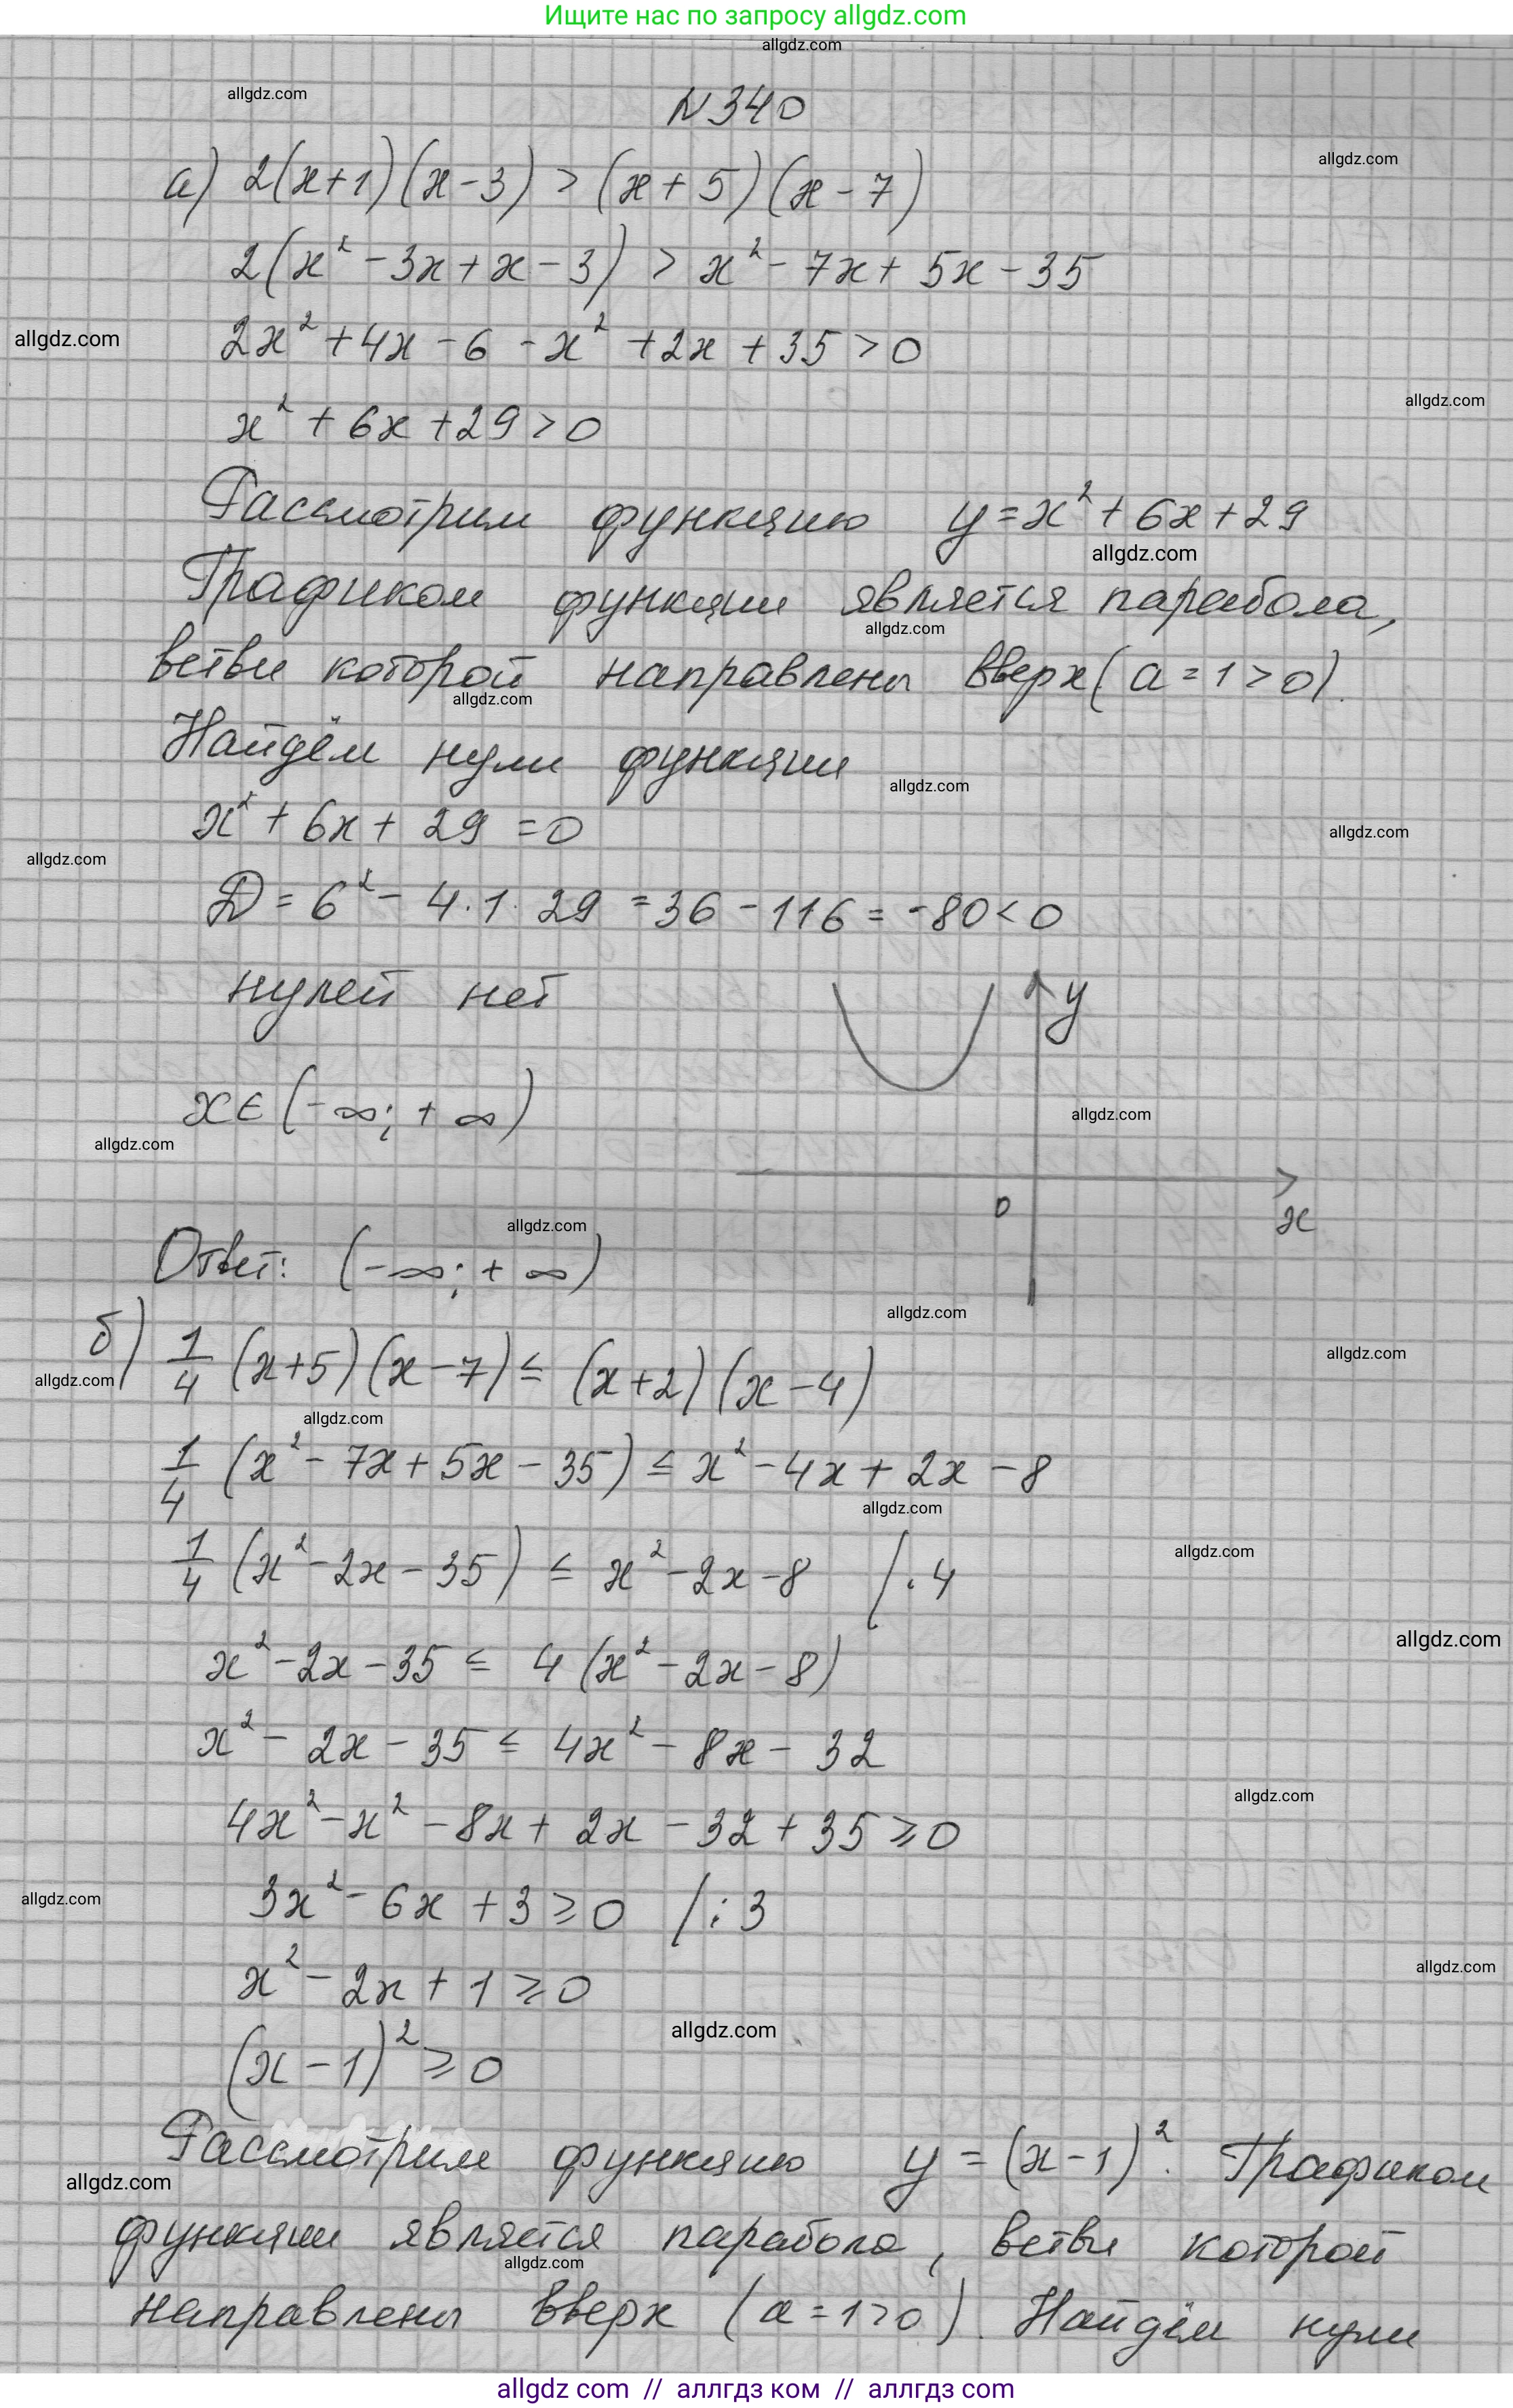 Ищите нас по запросу allgdz.com
allgdz.com
allgdz.com
N340
allgdz.com
а) 2(x+1)(x-3) > (x+5)(x-7)
2(x²-3x+x-3) > x²-7x+5x-35
allgdz.com
2x²+4x-6-x²+2x+35>0
allgdz.com
x²+6x+29>0
Рассмотрим функцию y=x²+6x+29
allgdz.com
Графиком функции является парабола,
allgdz.com
ветви которой направлены вверх (a=1>0).
allgdz.com
Найдём нули функции
allgdz.com
x²+6x+29=0
allgdz.com
allgdz.com
D=6²-4·1·29=36-116=-80<0
нулей нет
y
x∈(-∞;+∞)
allgdz.com
allgdz.com
0
x
allgdz.com
Ответ: (-∞;+∞)
allgdz.com
б) 1/4 (x+5)(x-7)≤(x+2)(x-4)
allgdz.com
allgdz.com
allgdz.com
1/4 (x²-7x+5x-35)≤x²-4x+2x-8
allgdz.com
1/4 (x²-2x-35)≤x²-2x-8 /·4
allgdz.com
allgdz.com
x²-2x-35≤4(x²-2x-8)
x²-2x-35≤4x²-8x-32
allgdz.com
4x²-x²-8x+2x-32+35≥0
allgdz.com
3x²-6x+3≥0 /:3
allgdz.com
x²-2x+1≥0
allgdz.com
(x-1)²≥0
Рассмотрим функцию y=(x-1)². Графиком
allgdz.com
функции является парабола, ветви которой
allgdz.com
направлены вверх (a=1>0). Найдём нули
allgdz com // аллгдз ком // аллгдз com